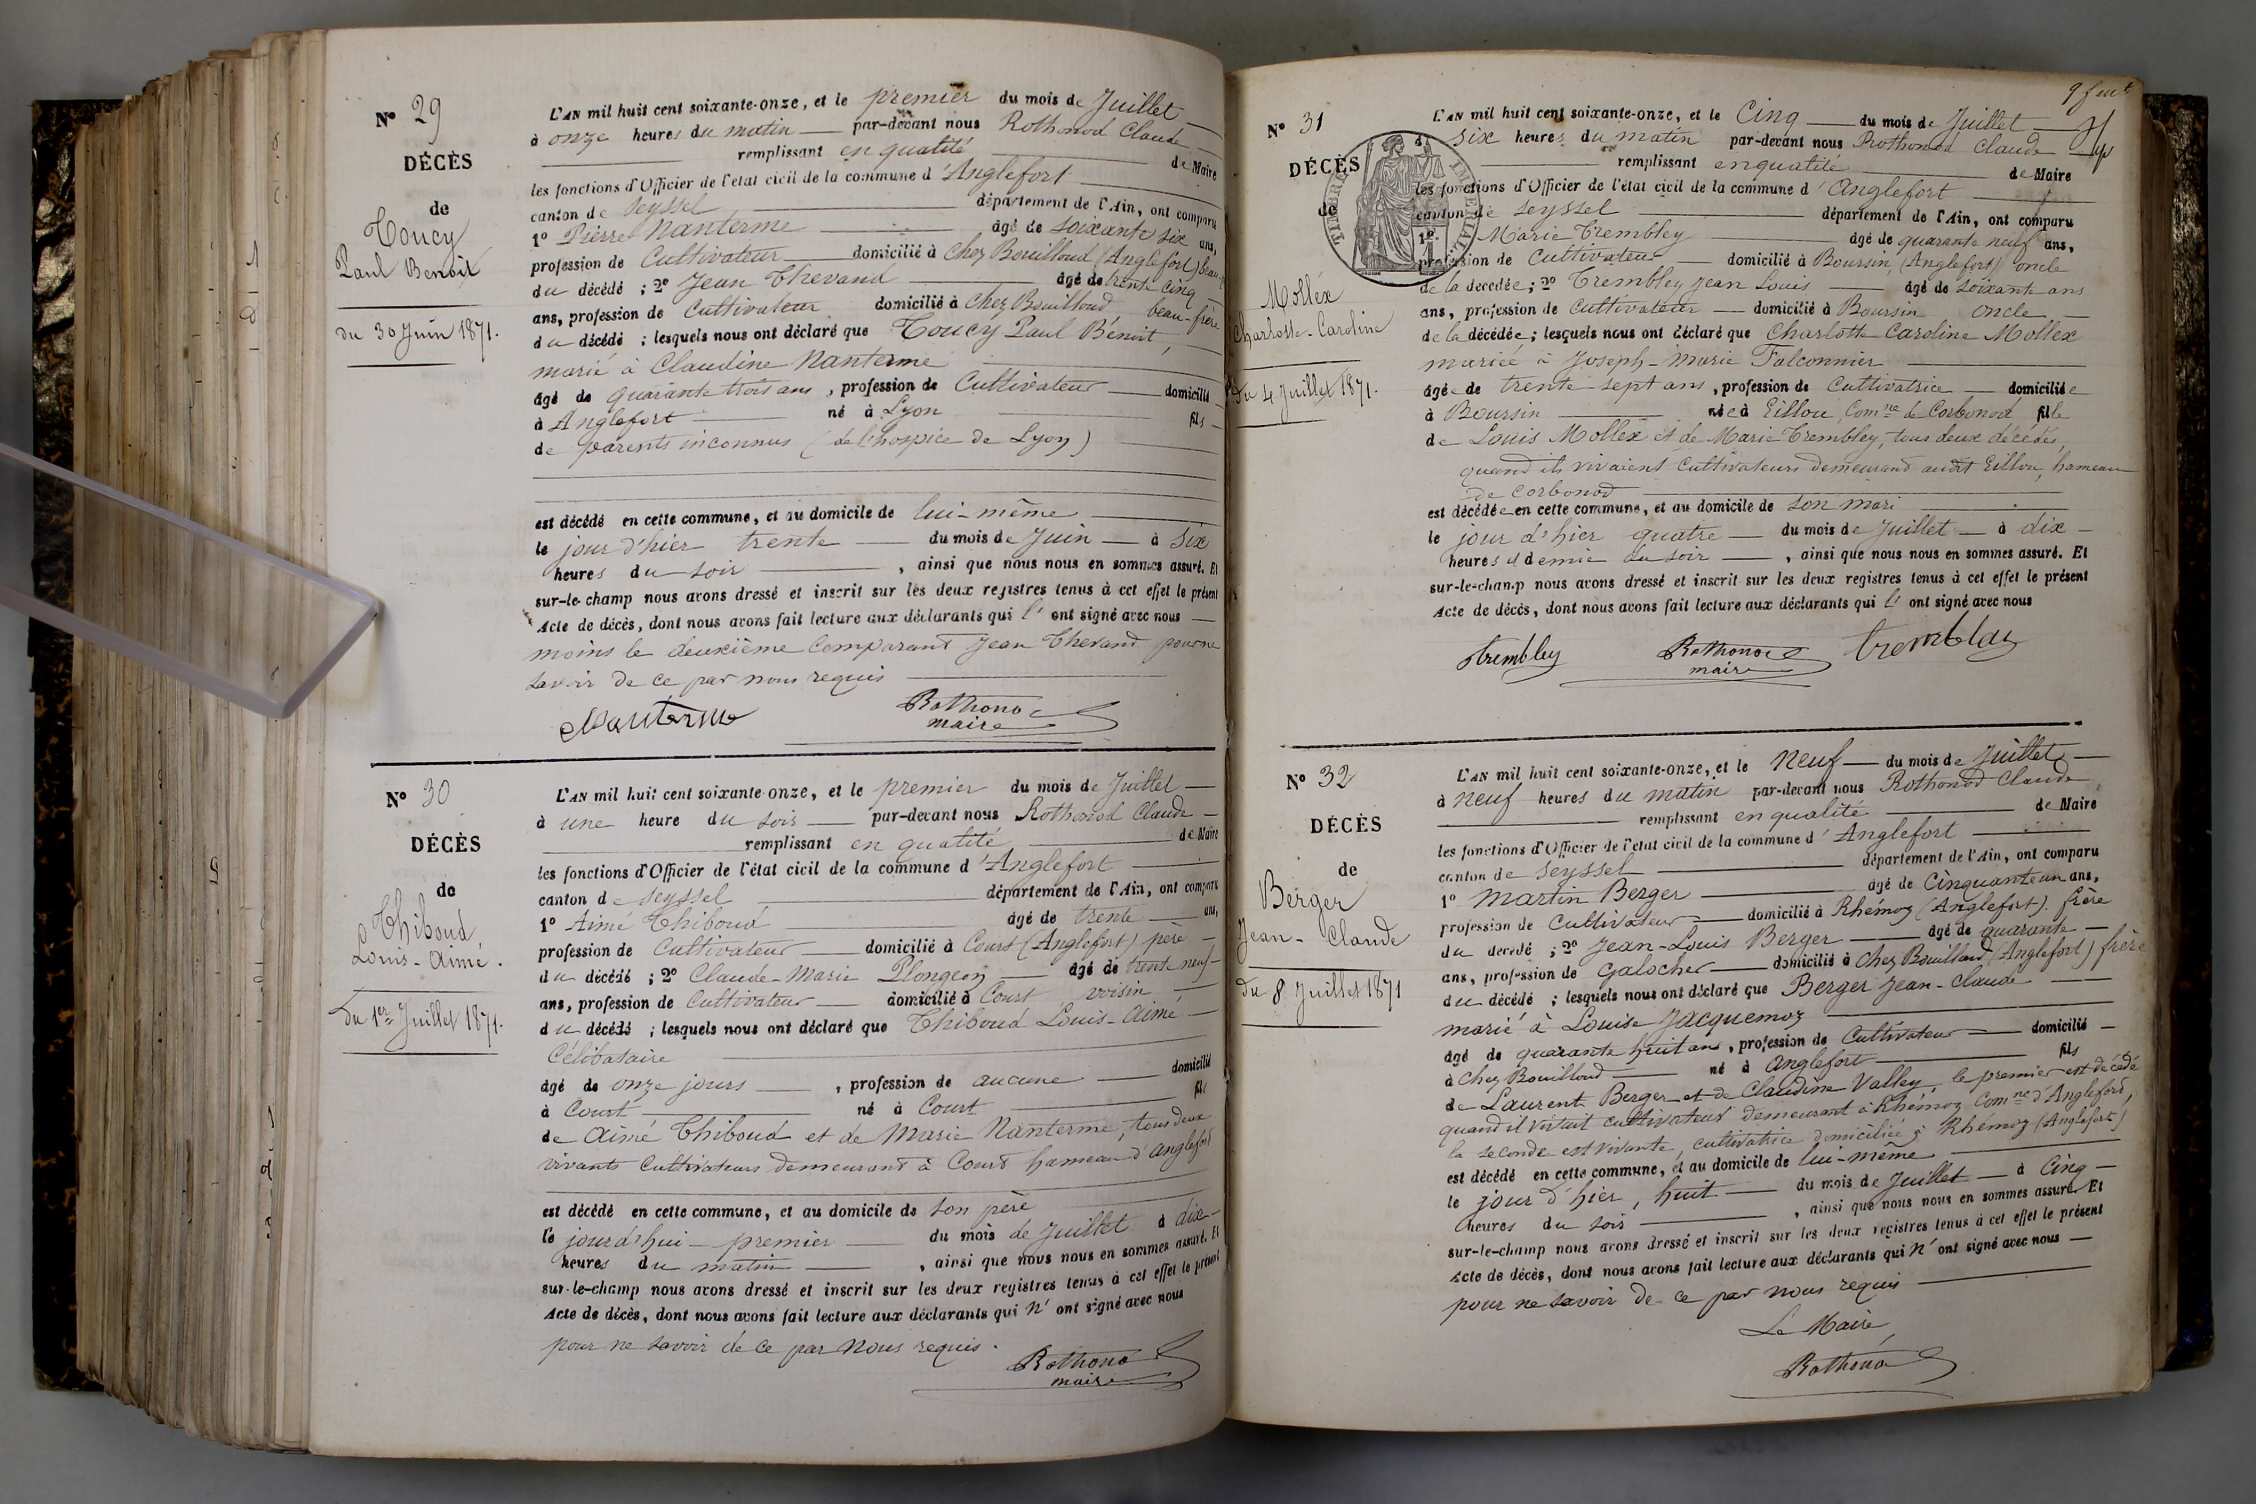 N° 29
DÉCÈS
de
Toucy
Paul Benoit
du 30 Juin 1871.
L'AN mil huit cent soixante-onze, et le premier du mois de Juillet
à onze heures du matin par-devant nous Rothonod Claude
remplissant en qualité de Maire
les fonctions d'Officier de l'état civil de la commune d'Anglefort
canton de Seyssel département de l'Ain, ont comparu
1° Pierre Nanterme âgé de soixante six ans,
profession de Cultivateur domicilié à Chez Bouilloud (Anglefort)
du décédé ; 2° Jean Thevand âgé de trente cinq
ans, profession de Cultivateur domicilié à Chez Bouilloud beau-frère
du décédé ; lesquels nous ont déclaré que Toucy Paul Bénoit,
marié à Claudine Nanterme
âgé de quarante trois ans, profession de Cultivateur domicilié
à Anglefort né à Lyon fils
de parents inconnus (de l'hospice de Lyon)
est décédé en cette commune, et au domicile de lui-même
le jour d'hier trente du mois de Juin à six
heures du soir, ainsi que nous nous en sommes assuré. Et
sur-le-champ nous avons dressé et inscrit sur les deux registres tenus à cet effet le présent
Acte de décès, dont nous avons fait lecture aux déclarants qui l' ont signé avec nous
moins le deuxième Comparant Jean Thevand pour ne
savoir de ce par nous requis
Nanterme Rothonod
maire
N° 30
DÉCÈS
de
Thiboud
Louis-Aimé.
du 1er Juillet 1871.
L'AN mil huit cent soixante-onze, et le premier du mois de Juillet
à une heure du soir par-devant nous Rothonod Claude
remplissant en qualité de Maire
les fonctions d'Officier de l'état civil de la commune d'Anglefort
canton de Seyssel département de l'Ain, ont comparu
1° Aimé Thiboud âgé de trente ans,
profession de Cultivateur domicilié à Court (Anglefort) père
du décédé ; 2° Claude-Marie Plongeon âgé de trente neuf
ans, profession de Cultivateur domicilié à Court voisin
du décédé ; lesquels nous ont déclaré que Thiboud Louis-Aimé
Célibataire
âgé de onze jours, profession de aucune domicilié
à Court né à Court fils
de Aimé Thiboud et de Marie Nanterme, tous deux
vivants Cultivateurs demeurant à Court hameau d'Anglefort
est décédé en cette commune, et au domicile de son père
le jourd'hui premier du mois de Juillet à dix
heures du matin, ainsi que nous nous en sommes assuré. Et
sur-le-champ nous avons dressé et inscrit sur les deux registres tenus à cet effet le présent
Acte de décès, dont nous avons fait lecture aux déclarants qui n' ont signé avec nous
pour ne savoir de ce par nous requis.
Rothonod
maire
9 feuet
N° 31
DÉCÈS
de
Mollex
Charlotte-Caroline
Du 4 Juillet 1871.
TIMBRE IMPERIAL
L'AN mil huit cent soixante-onze, et le Cinq du mois de Juillet
à six heures du matin par-devant nous Rothonod Claude
remplissant en qualité de Maire
les fonctions d'Officier de l'état civil de la commune d'Anglefort
canton de Seyssel département de l'Ain, ont comparu
1° Marie Trembley âgé de quarante neuf ans,
profession de Cultivateur domicilié à Boursin (Anglefort) oncle
de la décédée ; 2° Trembley Jean Louis âgé de soixante ans
ans, profession de Cultivateur domicilié à Boursin oncle
de la décédée ; lesquels nous ont déclaré que Charlotte Caroline Mollex
mariée à Joseph-Marie Falconnier
âgée de trente sept ans, profession de Cultivatrice domiciliée
à Boursin née à Eillou, Comne de Corbonod fille
de Louis Mollex et de Marie Trembley, tous deux décédés,
quand ils vivaient Cultivateurs demeurant audit Eillou, hameau
de Corbonod
est décédée en cette commune, et au domicile de son mari
le jour d'hier quatre du mois de Juillet à dix
heures et demie du soir, ainsi que nous nous en sommes assuré. Et
sur-le-champ nous avons dressé et inscrit sur les deux registres tenus à cet effet le présent
Acte de décès, dont nous avons fait lecture aux déclarants qui l' ont signé avec nous
trembley Rothonod tremblay
maire
N° 32
DÉCÈS
de
Berger
Jean-Claude
du 8 Juillet 1871
L'AN mil huit cent soixante-onze, et le Neuf du mois de Juillet
à neuf heures du matin par-devant nous Rothonod Claude
remplissant en qualité de Maire
les fonctions d'Officier de l'état civil de la commune d'Anglefort
canton de Seyssel département de l'Ain, ont comparu
1° Martin Berger âgé de Cinquante un ans,
profession de Cultivateur domicilié à Rhémoz (Anglefort). frère
du décédé ; 2° Jean-Louis Berger âgé de quarante
ans, profession de Galocher domicilié à Chez Bouilloud (Anglefort) frère
du décédé ; lesquels nous ont déclaré que Berger Jean-Claude
marié à Louise Jacquemoz
âgé de quarante huit ans, profession de Cultivateur domicilié
à Chez Bouilloud né à Anglefort fils
de Laurent Berger et de Claudine Valley, le premier est décédé
quand il vivait cultivateur demeurant à Rhémoz Comne d'Anglefort,
la seconde est vivante, cultivatrice domiciliée à Rhémoz (Anglefort)
est décédé en cette commune, et au domicile de lui-même
le jour d'hier, huit du mois de Juillet à Cinq
heures du soir, ainsi que nous nous en sommes assuré. Et
sur-le-champ nous avons dressé et inscrit sur les deux registres tenus à cet effet le présent
Acte de décès, dont nous avons fait lecture aux déclarants qui n' ont signé avec nous
pour ne savoir de ce par nous requis
Le Maire,
Rothonod